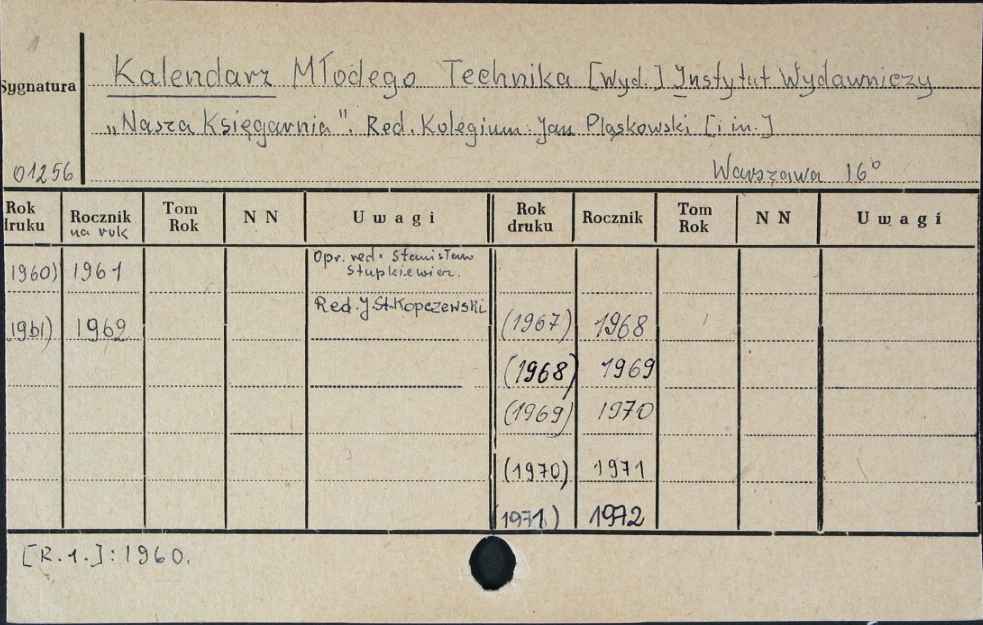 Sygnatura
Kalendarz Młodego Technika [Wyd.] Instytut Wydawniczy
„Nasza Księgarnia". Red. Kolegium: Jan Pląskowski [i in.]
01256
Warszawa 16°
Rok druku
Rocznik na rok
Tom Rok
N N
Uwagi
Rok druku
Rocznik
Tom Rok
N N
Uwagi
1960) 1961 Opr. red. Stanisław
Słupkiewicz.
Red. J.St.Kopczewski
1961) 1962
(1967) 1968
(1968) 1969
(1969) 1970
(1970) 1971
(1971) 1972
[R.1.]:1960.